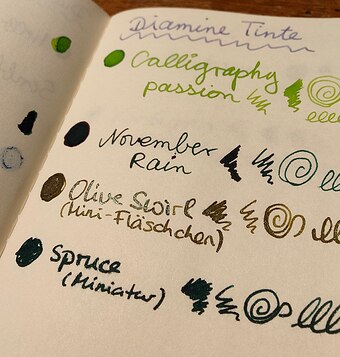 Diamine Tinte
Calligraphy
passion
November
Rain
Olive Swirl
(Mini-Fläschchen)
Spruce
(Miniatur)